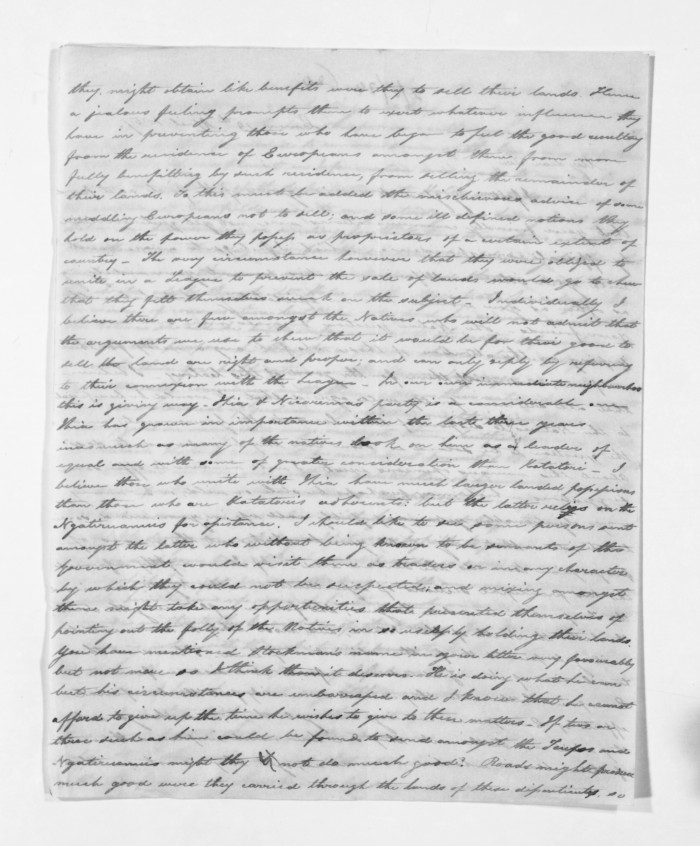 they might obtain like benefits were they to sell their lands. Hence
a jealous feeling prompts them to exert whatever influence they
have in preventing those who have began to feel the good resulting
from the residence of Europeans amongst them from more
fully benefitting by such residence, from selling the remainder of
their lands. To this must be added the mischievous advice of some
meddling Europeans not to sell; and some ill defined notions they
hold on the power they possess as proprietors of a certain extent of
country - The very circumstance however that they were obliged to
unite in a League to prevent the sale of lands would go to shew
that they felt themselves weak on the subject - Individually I
believe there are few amongst the Natives who will not admit that
the arguments we use to shew that it would be for their good to
sell the land are right and proper, and can only reply by referring
to their connexion with the League - In our own immediate neighbourhood
this is giving way - Ihia & Nicorima's party is a considerable one
Ihia has grown in importance within the last three years
inasmuch as many of the natives look on him as a leader of
equal and with some of greater consideration than Katatori - I
believe those who unite with Ihia have much larger landed possessions
than those who are Katatoris adherents: but the latter relies on the
Ngatiruanuis for assistance. I should like to see some persons sent
amongst the latter who without being known to be servants of the
Government, would visit them as traders or in any character
by which they could not be suspected, and mixing amongst
them might take any opportunities that presented themselves of
pointing out the folly of the Natives in so uselessly holding their lands.
You have mentioned Stockman's name in your letter very favourably
but not more so I think than it deserves. He is doing what he can
but his circumstances are embarrassed and I know that he cannot
afford to give up the time he wishes to give to these matters - If two or
three such as him could be found to send amongst the Taupos and
Ngatiruanuis might they not do much good? Roads might produce
much good were they carried through the lands of these dissentients, so